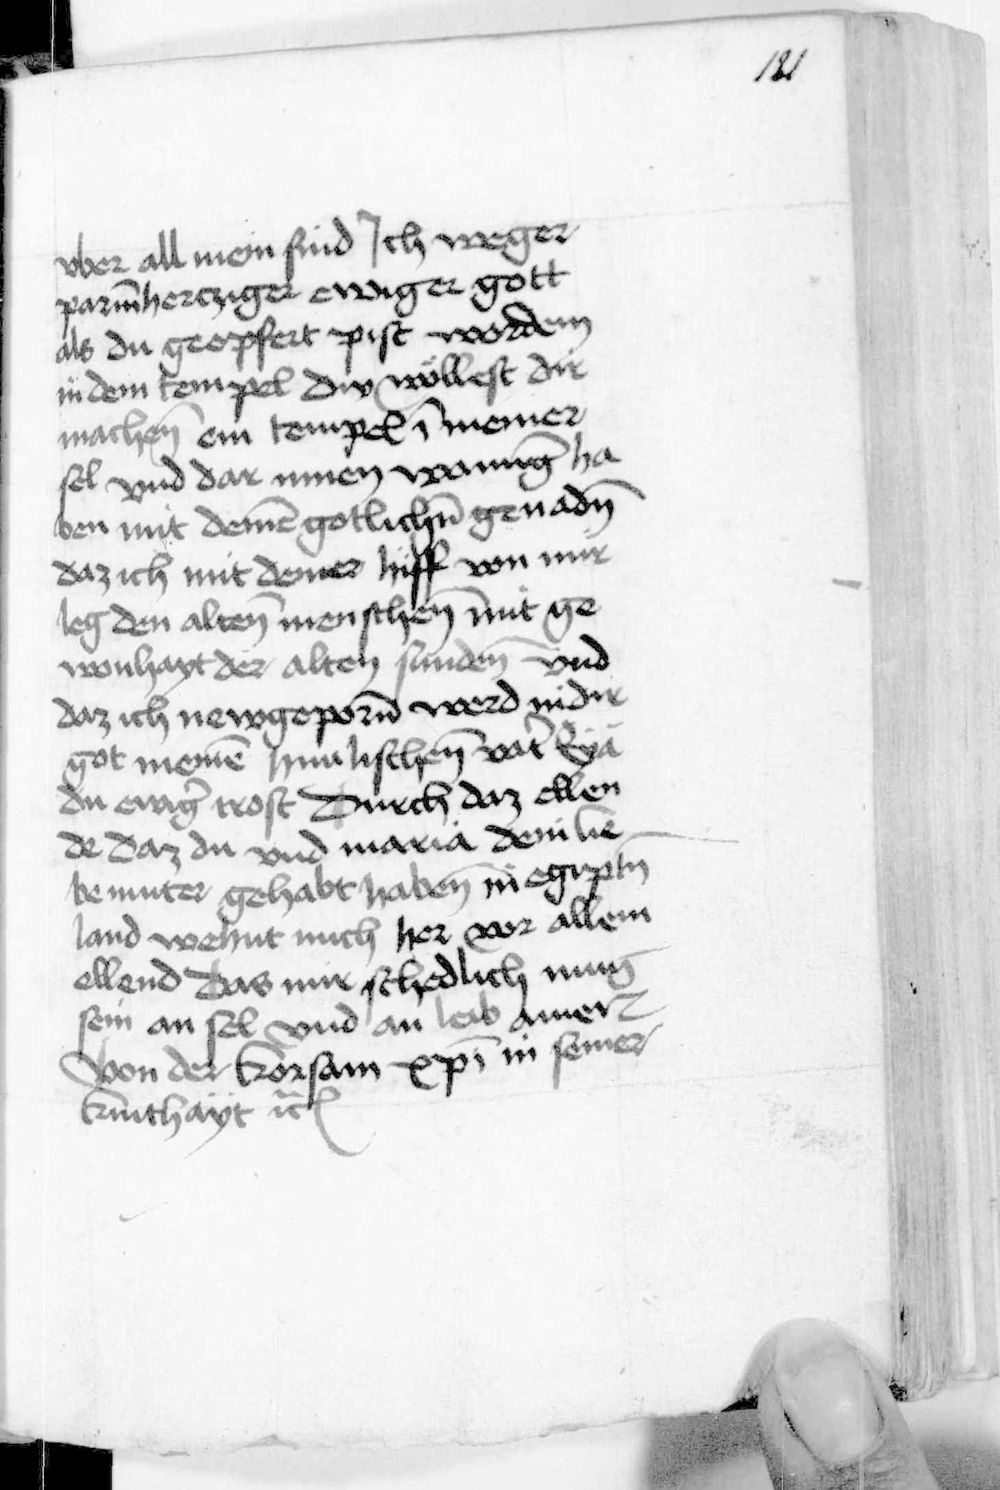 181
vber all mein sund Ich weger
parm̄hercziger ewiger gott
als du geopfert pist worden
in dem tempel Du wöllest dir
machen̄ ein tempel ī meiner
sel vnd dar innen wanūg ha
ben mit deinē gotlichn̄ genadn̄
daz ich mit deiner hilff von mir
leg den alten̄ menschen̄ mit ge
wonhayt der alten sunden̄ vnd
daz ich newgeporn̄ werd in dir
got meinē himlischen̄ vat̄ Eyä
du ewiḡ trost Durch daz ellen
de Daz du vnd maria dein lie
be muter gehabt haben̄ in egiptn̄
land mich her vor allem
ellend Das mir schedlich mug
sein an sel vnd an leib Amen
Von der korsam xp̄i in seiner
kinthäyt ꝛc̄